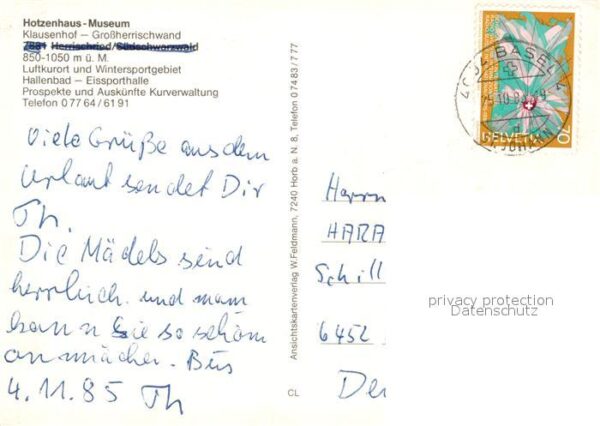 Hotzenhaus-Museum
Klausenhof – Großherrischwand
7881 Herrischried/Südschwarzwald
850-1050 m ü. M.
Luftkurort und Wintersportgebiet
Hallenbad – Eissporthalle
Prospekte und Auskünfte Kurverwaltung
Telefon 0 77 64 / 61 91
Viele Grüße aus dem
Urlaut sendet Dir
Th.
Die Mädels sind
herrlich und man
kann Sie so schön
anmachen. Bis
4.11.85 Th
Ansichtskartenverlag W. Feldmann, 7240 Horb a. N. 8, Telefon 0 74 83 / 7 77
CL
HELVETIA
70
BASEL
Herrn
HARA
Schill
6452
privacy protection
Datenschutz